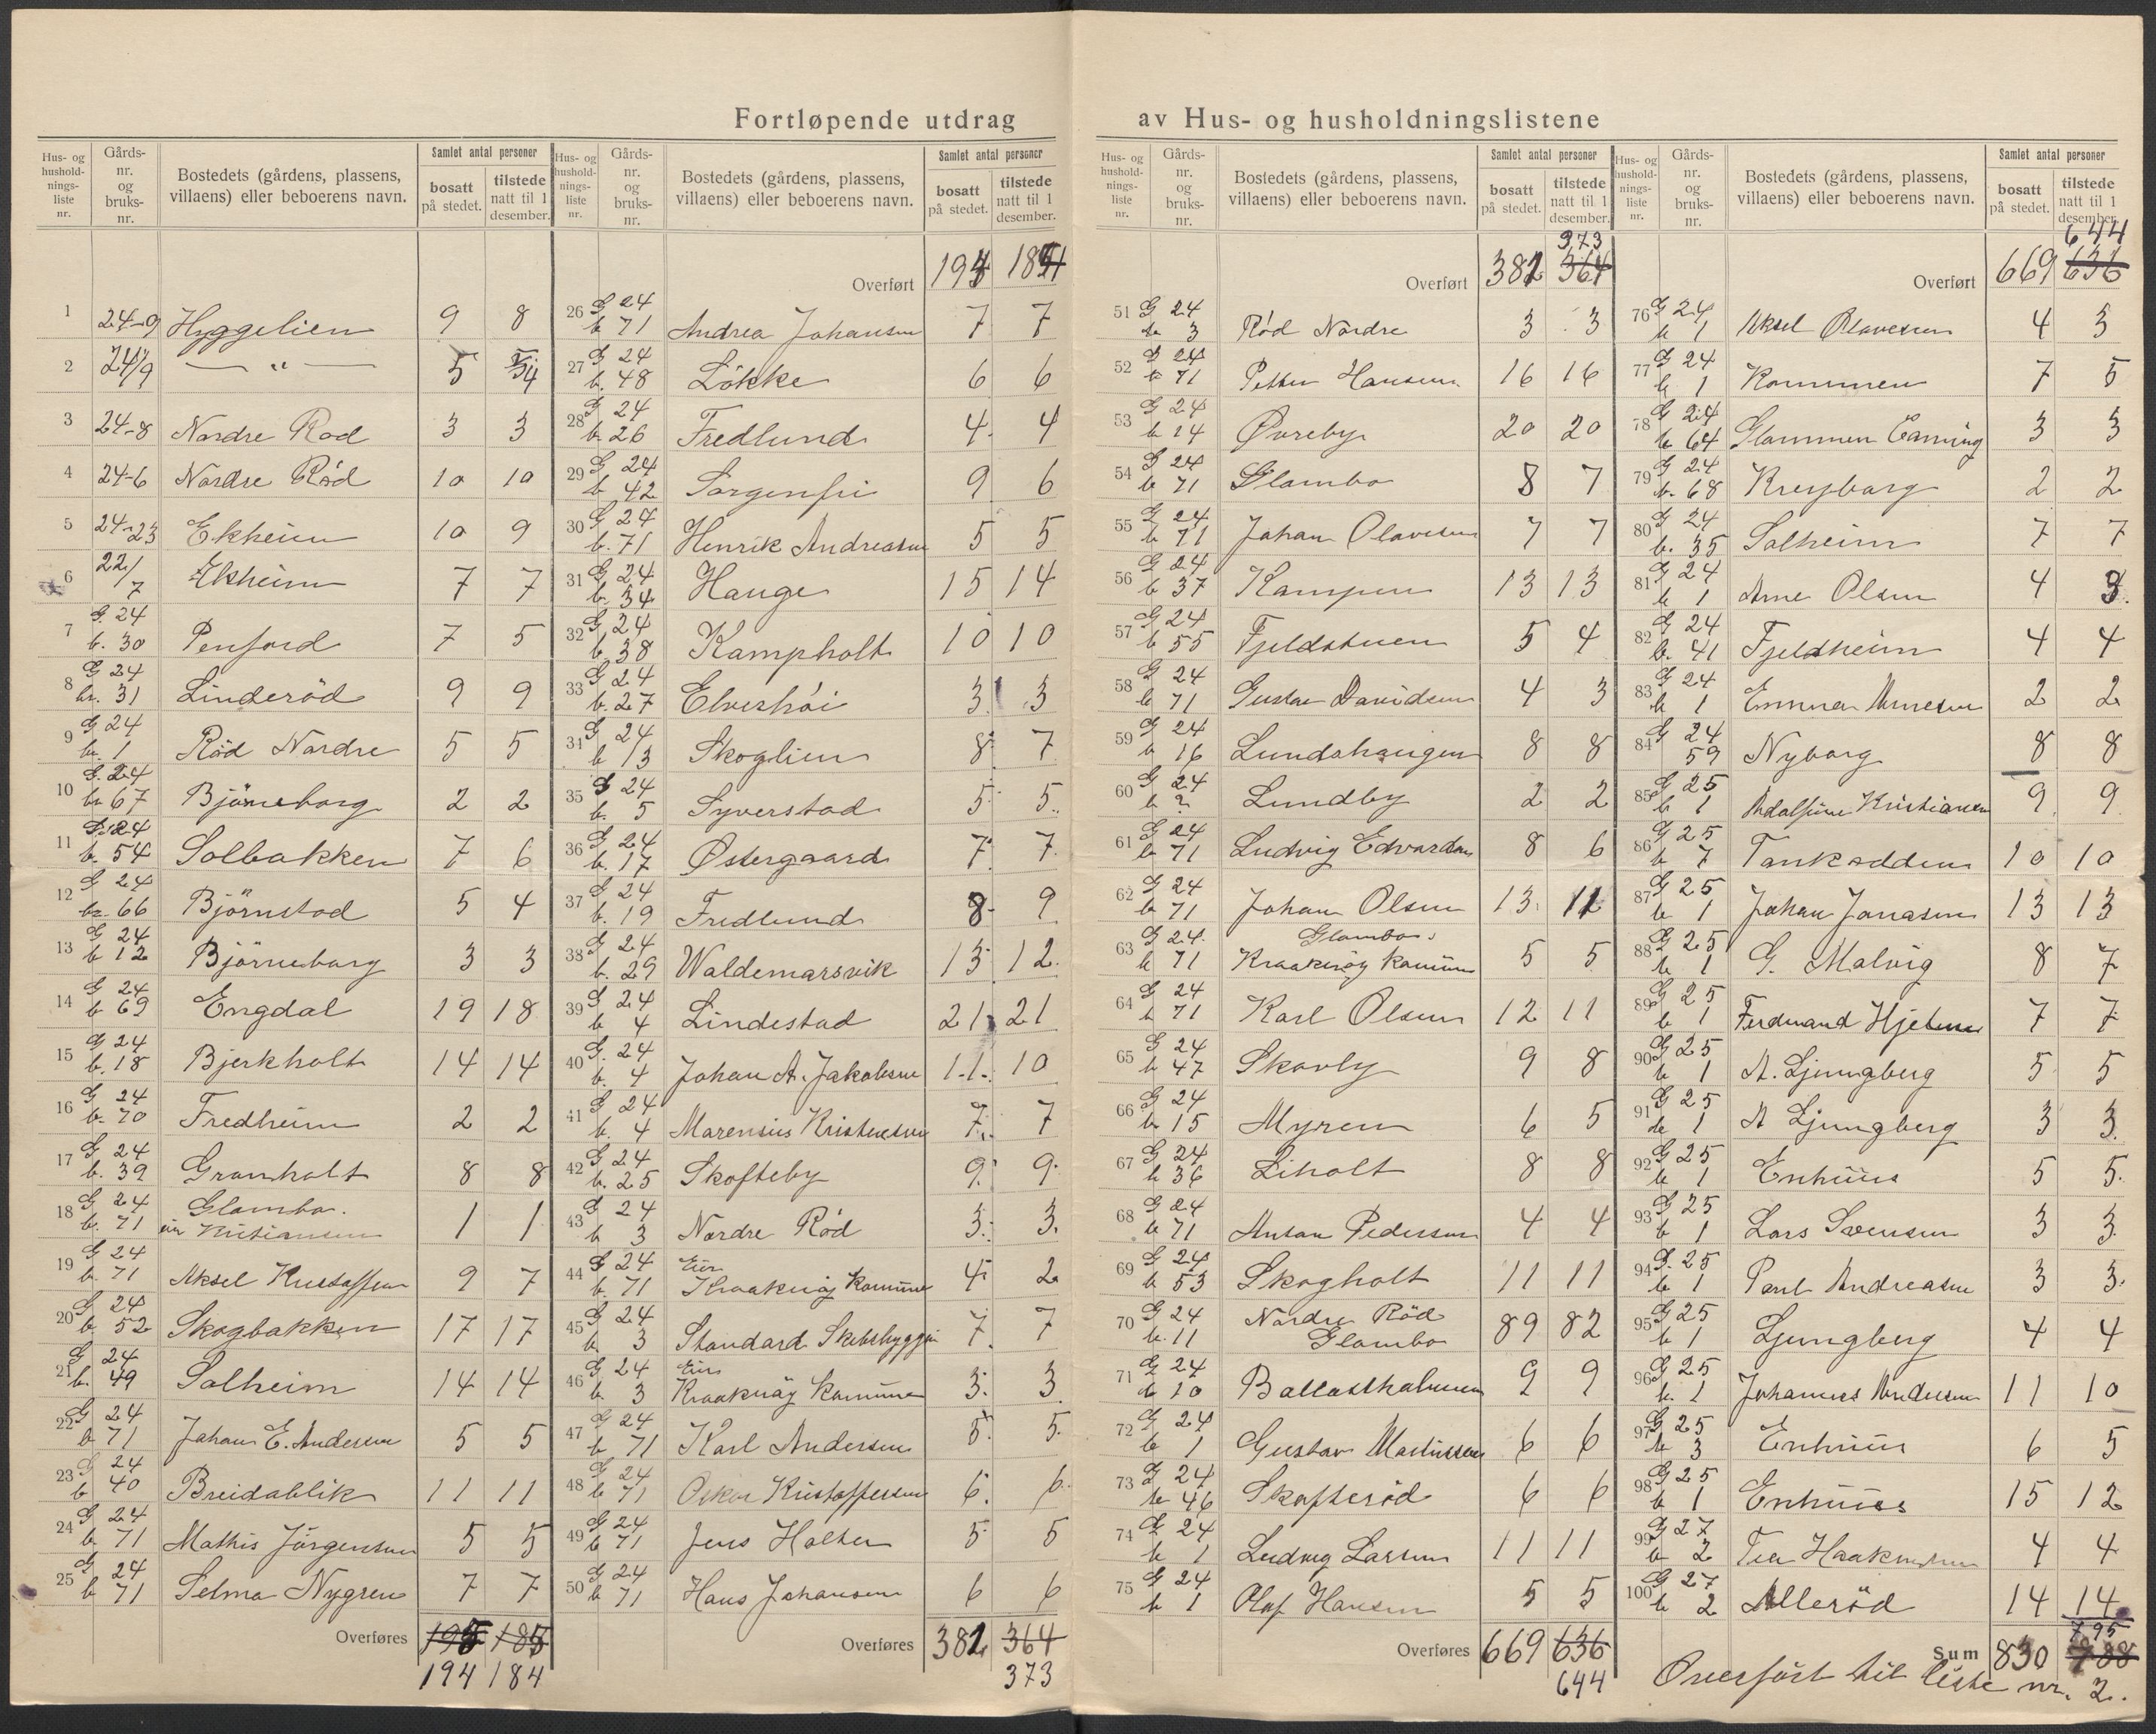 Fortløpende utdrag av Hus- og husholdningslistene
Hus- og hushold-nings-liste nr. Gårds-nr. og bruks-nr. Bostedets (gårdens, plassens, villaens) eller beboerens navn. Samlet antal personer bosatt på stedet. tilstede natt til 1 desember.
1 24-9 Hyggelien 9 8
2 24/9 — " — 5 4
3 24-8 Nordre Rød 3 3
4 24-6 Nordre Rød 10 10
5 24-23 Ekheim 10 9
6 22/7 Ekheim 7 7
7 G. 24 b. 30 Penjord 7 5
8 G 24 br. 31 Linderöd 9 9
9 G 24 br. 1 Röd Nordre 5 5
10 G. 24 br 67 Björneborg 2 2
11 G. 24 b. 54 Solbakken 7 6
12 G 24 br. 66 Björnstad 5 4
13 G 24 b 12 Björneborg 3 3
14 G 24 b 69 Engdal 19 18
15 G 24 b. 18 Bjerkholt 14 14
16 G 24 b. 70 Fredheim 2 2
17 G 24 b. 39 Granholt 8 8
18 G 24 b. 71 Glombo. Kristiansen 1 1
19 G 24 b. 71 Aksel Kristoffersen 9 7
20 G 24 b. 52 Skogbakken 17 17
21 G 24 b. 49 Solheim 14 14
22 G 24 b 71 Johan E. Andersen 5 5
23 G 24 b 40 Breidablik 11 11
24 G 24 b. 71 Mathis Jörgensen 5 5
25 G 24 b 71 Selma Nygren 7 7
Overføres 195 185
194 184
Hus- og hushold-nings-liste nr. Gårds-nr. og bruks-nr. Bostedets (gårdens, plassens, villaens) eller beboerens navn. Samlet antal personer bosatt på stedet. tilstede natt til 1 desember.
Overført 194 184
26 G 24 b 71 Andrea Johansen 7 7
27 G 24 b. 48 Lökke 6 6
28 G 24 b. 26 Fredlund 4 4
29 G 24 b 42 Sorgenfri 9 6
30 G 24 b. 71 Henrik Andreassen 5 5
31 G 24 b. 34 Hauge 15 14
32 G 24 b. 38 Kampholt 10 10
33 G 24 b. 27 Elveshöi 3 3
34 G 24 b 13 Skoglien 8 7
35 G 24 b. 5 Syverstad 5 5
36 G 24 b. 17 Østergaard 7 7
37 G 24 b. 19 Fredlund 8 9
38 G 24 b. 29 Waldemarsvik 13 12
39 G 24 b 4 Lindestad 21 21
40 G. 24 b. 4 Johan A. Jakobsen 11 10
41 G 24 b. 4 Marensius Kristensen 7 7
42 G 24 b. 25 Skofteby 9 9
43 G 24 b 3 Nordre Röd 3 3
44 G 24 b. 71 Eier Kraakeröy Kommune 4 2
45 G 24 b. 3 Standard Skibsbyggeri 7 7
46 G 24 b. 3 Eier Kraakeröy Kommune 3 3
47 G 24 b. 71 Karl Andersen 5 5
48 G 24 b 71 Oskar Kristoffersen 6 6
49 G 24 b 71 Jens Holter 5 5
50 G 24 b 71 Hans Johansen 6 6
Overføres 382 364
373
Hus- og hushold-nings-liste nr. Gårds-nr. og bruks-nr. Bostedets (gårdens, plassens, villaens) eller beboerens navn. Samlet antal personer bosatt på stedet. tilstede natt til 1 desember.
373
Overført 382 364
51 G 24 br 3 Röd Nordre 3 3
52 G 24 b 71 Petter Hansen 16 16
53 G 24 b 14 Øvreby 20 20
54 G 24 b 71 Glombo 8 7
55 G 24 b 71 Johan Olavesen 7 7
56 G 24 b 37 Kampen 13 13
57 G 24 b 55 Fjeldstuen 5 4
58 G 24 b 71 Gustav Davidsen 4 3
59 G 24 b 16 Lundshaugen 8 8
60 G 24 b ? Lundby 2 2
61 G 24 b 71 Ludvig Edvardsen 8 6
62 G 24 b 71 Johan Olsen 13 12
63 G 24. b 71 Glombo. Kraakeröy Kommune 5 5
64 G 24 b 71 Karl Olsen 12 11
65 G 24 b 47 Skovly 9 8
66 G 24 br 15 Myren 6 5
67 G 24 b 36 Liholt 8 8
68 G 24 b 71 Anton Pedersen 4 4
69 G 24 b 53 Skogholt 11 11
70 G 24 b. 11 Nordre Röd Glombo 89 82
71 G 24 b 10 Ballastholmen 9 9
72 G 24 b 1 Gustav Martinsen 6 6
73 G 24 br 46 Skofteröd 6 6
74 G 24 b 1 Ludvig Larsen 11 11
75 G 24 b 1 Olaf Hansen 5 5
Overføres 669 636
644
Hus- og hushold-nings-liste nr. Gårds-nr. og bruks-nr. Bostedets (gårdens, plassens, villaens) eller beboerens navn. Samlet antal personer bosatt på stedet. tilstede natt til 1 desember.
644
Overført 669 636
76 G 24 b 1 Aksel Olavesen 4 3
77 G 24 b 1 Kommunen 7 5
78 G 24 b 64 Glommen 3 3
79 G 24 b. 68 Kreyborg 2 2
80 G 24 b. 35 Solheim 7 7
81 G 24 b 1 Arne Olsen 4 3.
82 G 24 b. 41 Fjeldheim 4 4
83 G 24 b 1 Emma Arnesen 2 2
84 G 24 59 Nyborg 8 8
85 G 25 b 1 Adolfine Kristiansen 9 9
86 G 25 b 7 Tankodden 10 10
87 G 25 b 1 Johan Jonasen 13 13
88 G 25 b 1 G. Malvig 8 7
89 G 25 b 1 Ferdinand Hjelmen 7 7
90 G 25 b 1 A. Ljungberg 5 5
91 G 25 br 1 A Ljungberg 3 3.
92 G 25 b 1 Enhuus 5 5.
93 G 25 b 1 Lars Svensen 3 3
94 G. 25 b 1 Paul Andreasen 3 3.
95 G 25 b 1 Ljungberg 4 4
96 G 25 b. 1 Johannes Andersen 11 10
97 G 25 br 3 Enhuus 6 5
98 G 25 b 1 Enhuus 15 12
99 G 27 b 2 4 4
100 G 27 b 2 Alleröd 14 14
795
Sum 830 788
Overført til liste nr. 2.